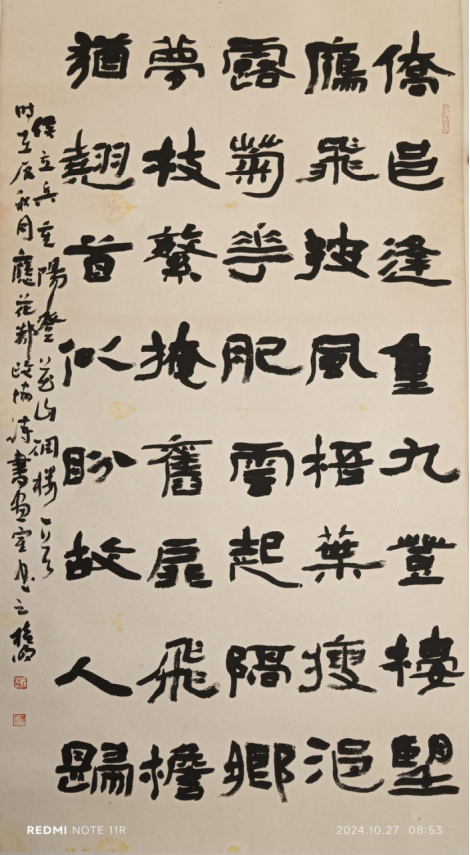 僑邑逢重九登樓望
鴈飛披風梧葉瘦浥
露菊華肥雲起隔鄉
夢枝繁掩舊扉飛檐
猶翹首似盼故人歸
侯立兵重陽登花山碉樓一首
时壬辰秋月應花都政協詩書畫室
REDMI NOTE 11R
2024.10.27 08:53